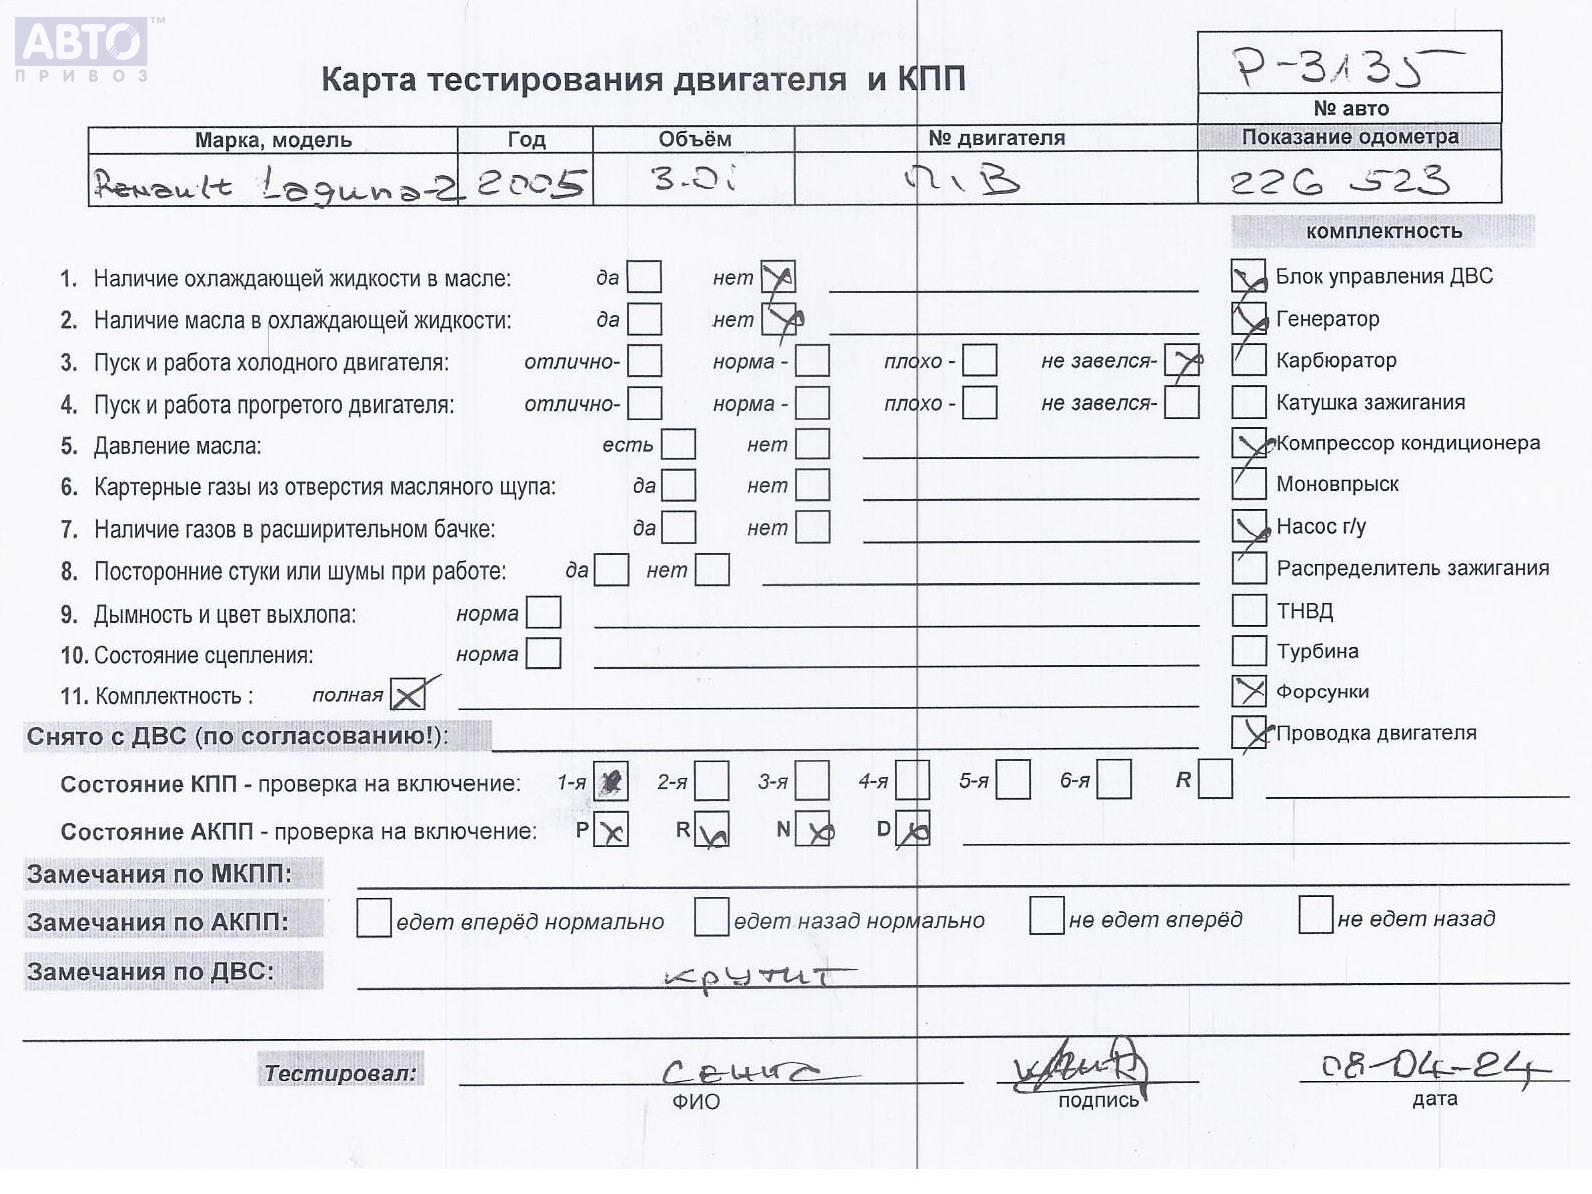 АВТО™
ПРИВОЗ
Карта тестирования двигателя и КПП
Р-3135
№ авто
Марка, модель Год Объём № двигателя Показание одометра
Renault Laguna-2 2005 3.0i 226 523
комплектность
1. Наличие охлаждающей жидкости в масле: да нет Блок управления ДВС
2. Наличие масла в охлаждающей жидкости: да нет Генератор
3. Пуск и работа холодного двигателя: отлично- норма - плохо - не завелся- Карбюратор
4. Пуск и работа прогретого двигателя: отлично- норма - плохо - не завелся- Катушка зажигания
5. Давление масла: есть нет Компрессор кондиционера
6. Картерные газы из отверстия масляного щупа: да нет Моновпрыск
7. Наличие газов в расширительном бачке: да нет Насос г/у
8. Посторонние стуки или шумы при работе: да нет Распределитель зажигания
9. Дымность и цвет выхлопа: норма ТНВД
10. Состояние сцепления: норма Турбина
11. Комплектность : полная Форсунки
Снято с ДВС (по согласованию!): Проводка двигателя
Состояние КПП - проверка на включение: 1-я 2-я 3-я 4-я 5-я 6-я R
Состояние АКПП - проверка на включение: P R N D
Замечания по МКПП:
Замечания по АКПП: едет вперёд нормально едет назад нормально не едет вперёд не едет назад
Замечания по ДВС: крутит
Тестировал: 08-04-24
ФИО подпись дата